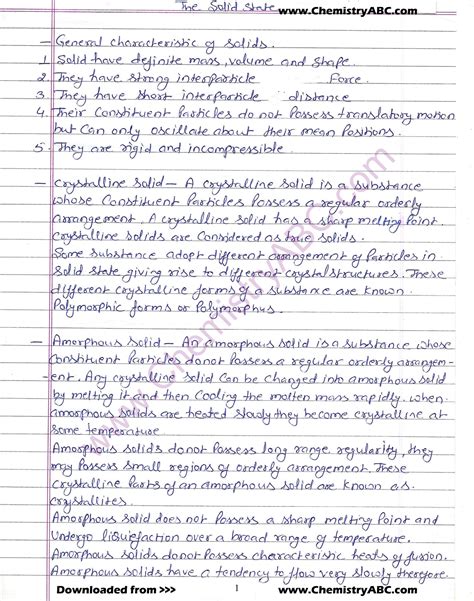 The Solid State www.ChemistryABC.com
- General characteristic of solids.
1. Solid have definite mass, volume and shape.
2. They have strong interparticle Force.
3. They have short interparticle distance
4. Their Constituent Particles do not Possess translatory motion
but can only oscillate about their mean Positions.
5. They are rigid and incompressible.
- Crystalline Solid - A crystalline solid is a substance
whose Constituent Particles Possess a regular orderly
arrangement. A crystalline solid has a sharp melting Point.
Crystalline solids are Considered as true solids.
Some substance adopt different arrangement of Particles in
Solid state giving rise to different crystal structures. These
different crystalline forms of a substance are known.
Polymorphic forms or Polymorphus.
- Amorphous Solid - An amorphous solid is a substance whose
Constituent Particles do not Possess a regular orderly arrangem-
-ent. Any crystalline solid can be changed into amorphous solid
by melting it and then cooling the molten mass rapidly. when
amorphous solids are heated slowly they become crystalline at
some temperature
Amorphous solids do not Possess long range regularity, they
may Possess small regions of orderly arrangement. These
crystalline Parts of an amorphous solid are known as.
Crystallites.
Amorphous solid does not Possess a sharp melting Point and
Undergo liquefaction over a broad range of temperature.
Amorphous solids do not Possess characteristic heats of fusion.
Amorphous solids have a tendency to flow very slowly therefore
Downloaded from >>> 1 www.ChemistryABC.com
www.ChemistryABC.com